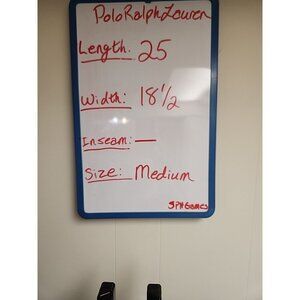 Polo Ralph Lauren
Length: 25
Width: 18 1/2
Inseam: —
Size: Medium
JPH Games